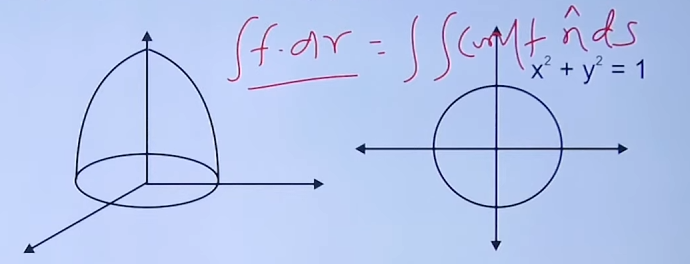 ∫f·dr = ∫∫Curl f n̂ ds
x² + y² = 1